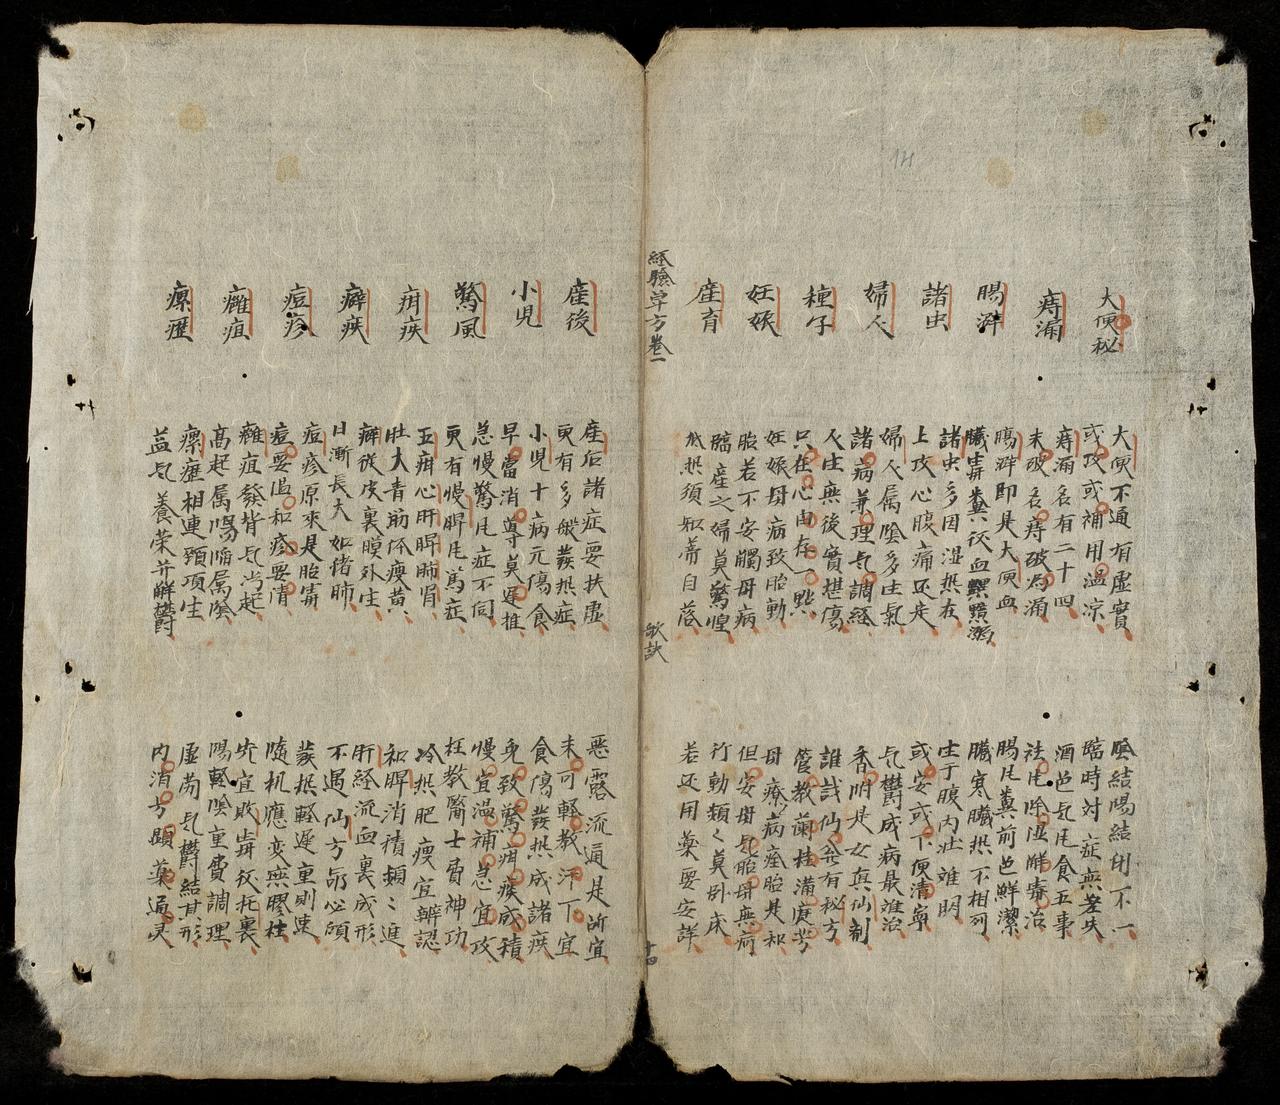 大便秘
痔漏
腸澼
諸虫
婦人
種子
妊娠
産育
大便不通有虛實
或攻或補用溫凉
痔漏名有二十四
未破名痔破為漏
腸澼即是大便血
臟毒糞後血
諸虫多因湿热在
上攻心腹痛还是
婦人属陰多生氣
諸病兼理気調經
人生無後實堪傷
只在心田存一點
妊娠母病致胎動
胎若不安觸母病
臨産之婦莫驚惶
瓜熟須知蒂自落
陰結陽結閉不一
臨時対症無差失
酒色気風食五事
袪風除湿解毒治
腸風糞前色鮮潔
臟寒臟热不相列
生于腹内壮难明
或安或下便清寧
気鬱成病最难治
香附是女真仙剤
誰識仙翁有秘方
管教蘭桂滿庭芳
母療病痊胎是和
但安母気胎毋無病
行動類々莫卧床
若还用藥要安詳
経驗草方卷一
歌訣
十四
産後
小児
驚風
疳疾
癖疾
痘疹
癰疽
瘰癧
産后諸症要扶虛
更有多般發热症
小児十病九傷食
早當消導莫遲推
急慢驚風症不同
更有慢脾風篤症
五疳心肝脾肺腎
肚大青筋体瘦黄
癖從皮裏膜外生
日漸長大如猪肺
痘疹原來是胎毒
痘要溫和疹要清
癰疽發背気当起
高起属陽陥属陰
瘰癧相連頸項生
益気養荣并解鬱
惡露流通是所宜
未可輕教汗下宜
食傷發热成諸疾
免致驚疳疾成積
慢宜溫補急宜攻
枉教醫士費神功
冷热肥瘦宜辨認
和脾消積頻々進
肝経流血裏成形
不遇仙方命必頃
發热輕遲重則速
隨机應変無膠柱
先宜敗毒後托裏
陽輕陰重費調理
虛劳気鬱結其形
内消方顕藥通灵